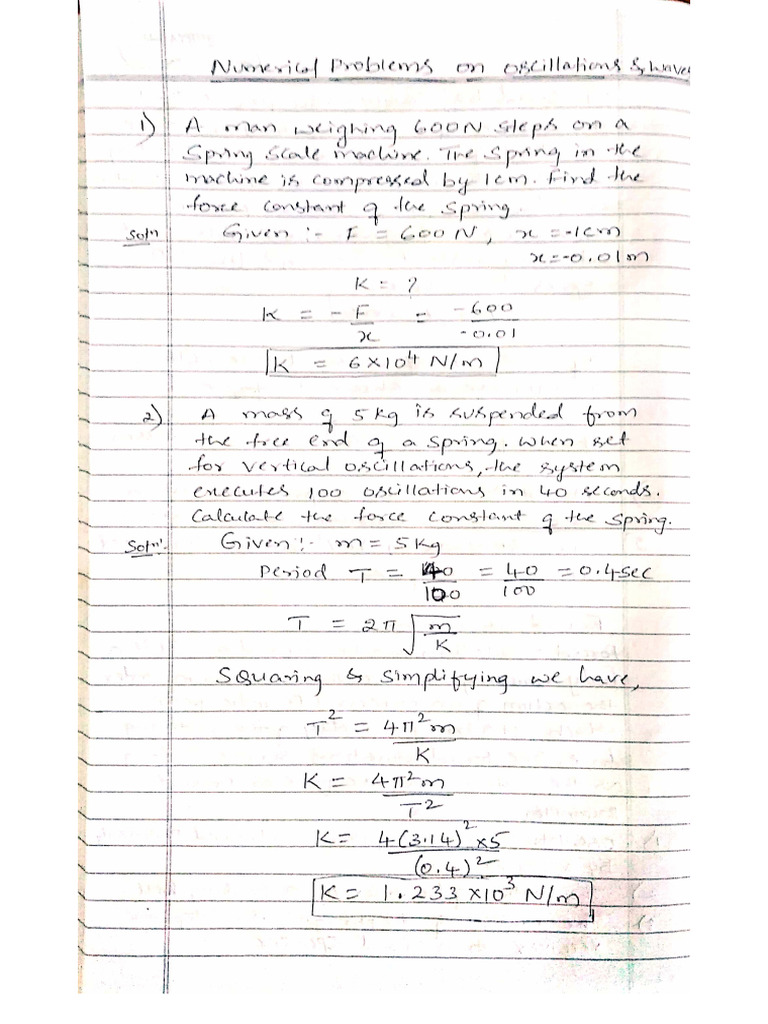 Numerical Problems on oscillations & waves
1) A man weighing 600N steps on a
Spring scale machine. The spring in the
machine is compressed by 1cm. Find the
force constant of the spring.
Soln Given :- F = 600N, x = -1cm
x = -0.01m
K = ?
K = -F/x = -600/-0.01
K = 6×10⁴ N/m
2) A mass of 5kg is suspended from
the free end of a spring. When set
for vertical oscillations, the system
executes 100 oscillations in 40 seconds.
Calculate the force constant of the spring.
Soln:- Given :- m = 5kg
Period T = 40/100 = 40/100 = 0.4sec
T = 2π √(m/K)
Squaring & simplifying we have,
T² = 4π²m/K
K = 4π²m/T²
K = 4(3.14)² ×5/(0.4)²
K = 1.233 ×10³ N/m